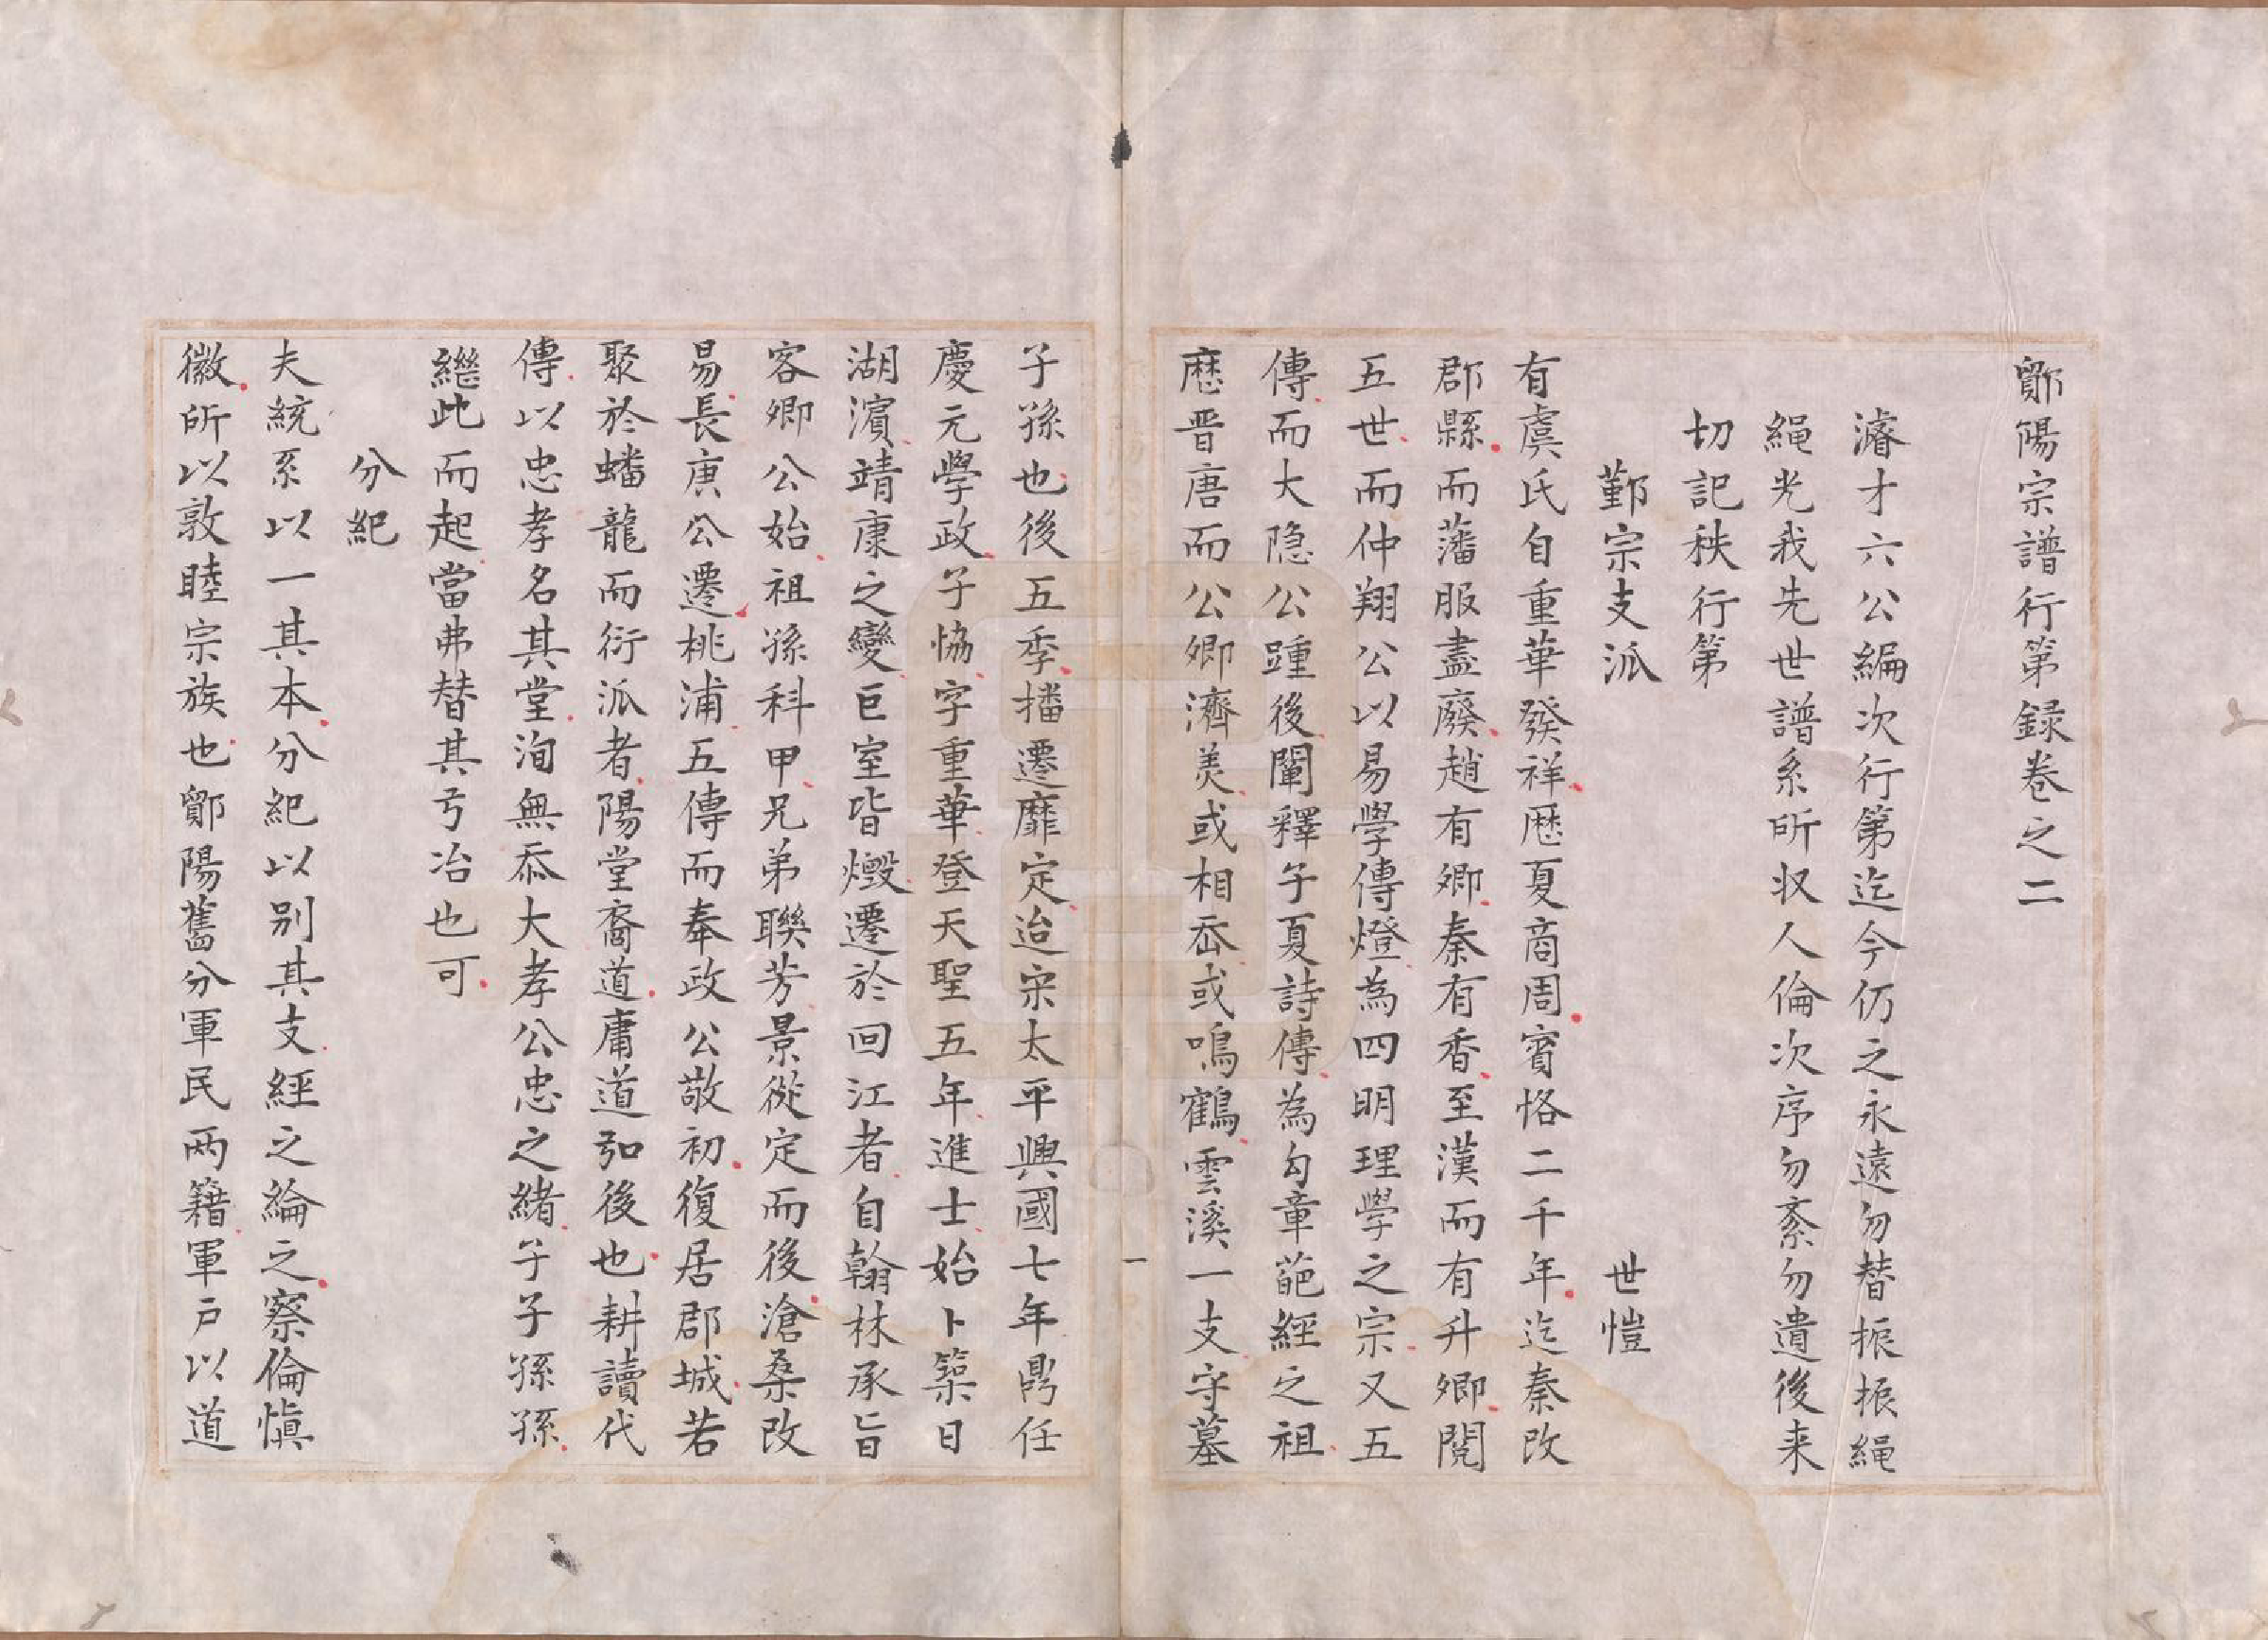 鄮陽宗譜行第録卷之二
濬才六公編次行第迄今仍之永遠勿替振振繩
繩光我先世譜系所収人倫次序勿紊勿遺後来
切記秩行第
鄞宗支派 世愷
有虞氏自重華發祥歷夏商周賓恪二千年迄秦改
郡縣而藩服盡廢趙有卿秦有香至漢而有升卿閱
五世而仲翔公以易學傳燈為四明理學之宗又五
傳而大隐公踵後闡釋子夏詩傳為勾章葩經之祖
歷晋唐而公卿濟美或相岙或鳴鶴雲溪一支守墓
子孫也後五季播遷靡定迨宋太平興國七年鼎任
慶元學政子恊字重華登天聖五年進士始卜築日
湖濵靖康之變巨室皆燬遷於回江者自翰林承旨
客卿公始祖孫科甲兄弟聯芳景從定而後滄桑改
易長庚公遷桃浦五傳而奉政公敬初復居郡城若
聚於蟠龍而衍派者陽堂裔道庸道弘後也耕讀代
傳以忠孝名其堂洵無忝大孝公忠之緒子子孫孫
繼此而起當弗替其弓冶也可
分紀
夫統系以一其本分紀以别其支經之綸之察倫愼
徽所以敦睦宗族也鄮陽舊分軍民两籍軍户以道
一